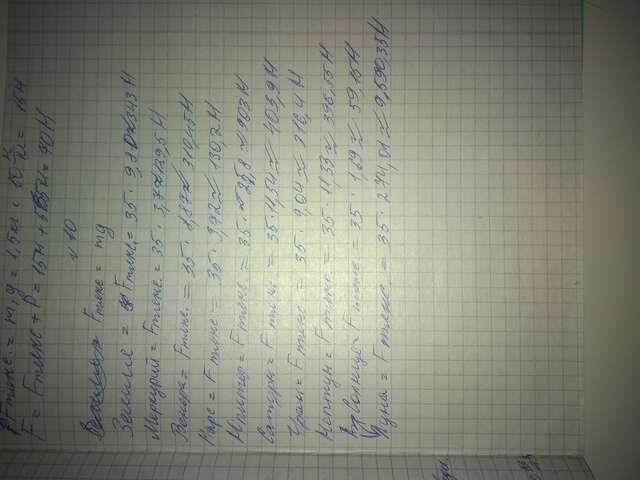 Fтяже. = m·g = 1,5кг · 10 Н/кг = 15Н
F = Fтяже + P = 15Н + 55Н = 70Н
№10
Fтяже = mg
Земле = Fтяже = 35 · 9,8 ≈ 343Н
Меркурий = Fтяже = 35 · 3,7 ≈ 129,5Н
Венера = Fтяже. = 35 · 8,87 ≈ 310,45Н
Марс = Fтяже = 35 · 3,72 ≈ 130,2Н
Юпитер = Fтяже = 35 · 25,8 ≈ 903Н
Сатурн = Fтяже = 35 · 11,54 ≈ 403,9Н
Уран = Fтяже = 35 · 9,04 ≈ 316,4Н
Нептун = Fтяже = 35 · 11,33 ≈ 396,55Н
Fтяже = 35 · 1,69 ≈ 59,15Н
Луна = Fтяже = 35 · 274,01 ≈ 9,590,35Н